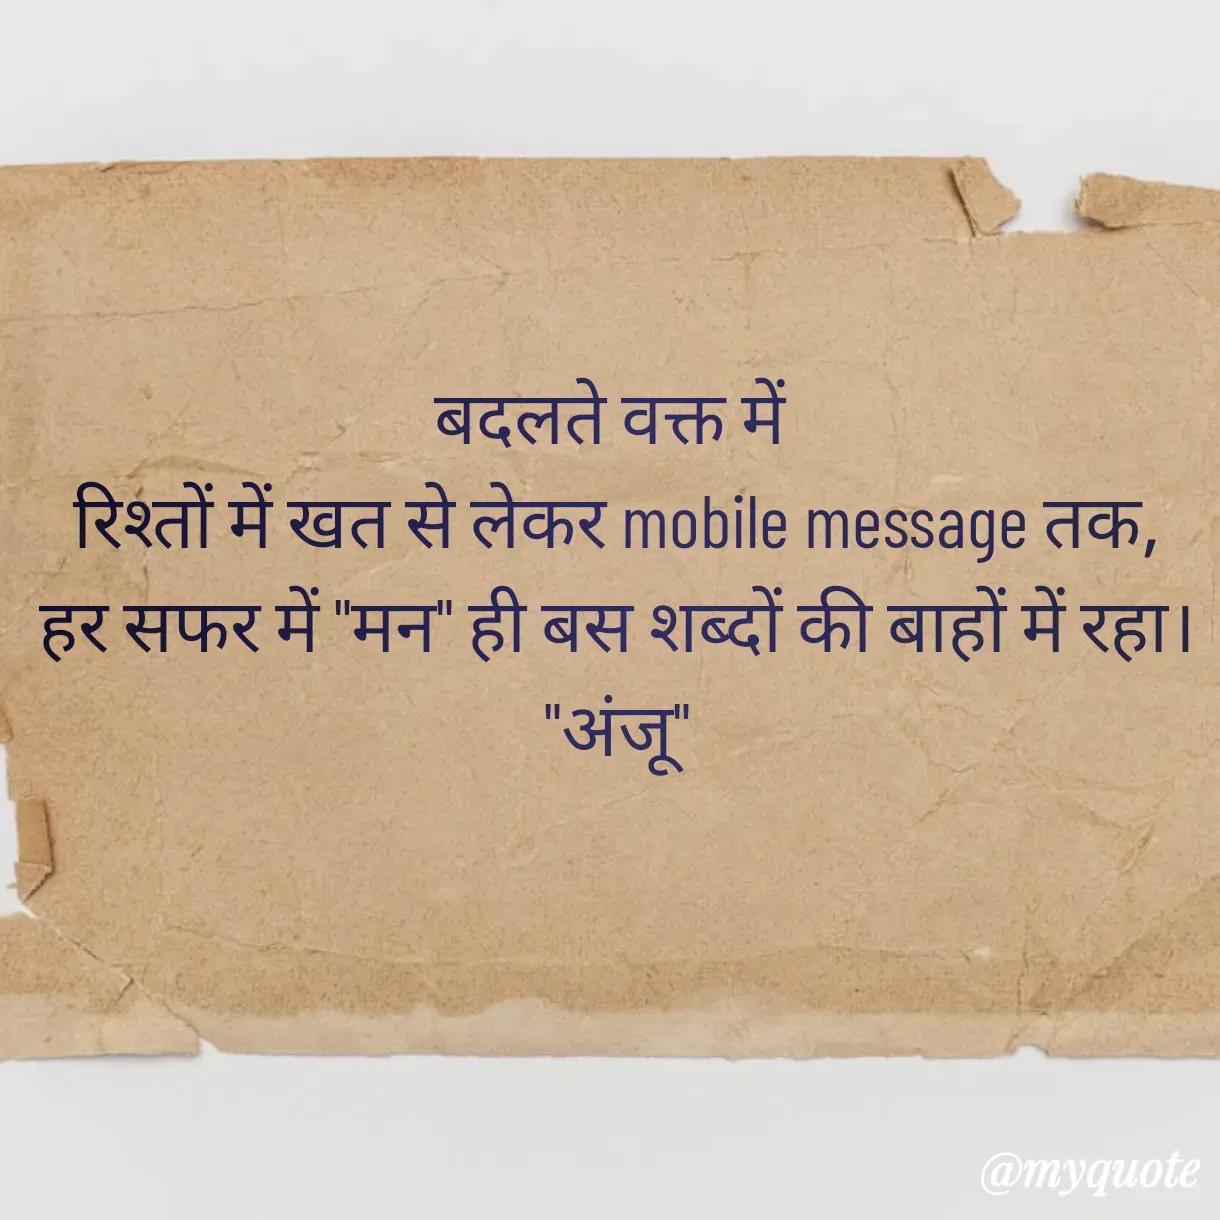 बदलते वक्त में
रिश्तों में खत से लेकर mobile message तक,
हर सफर में "मन" ही बस शब्दों की बाहों में रहा।
"अंजू"
@myquote